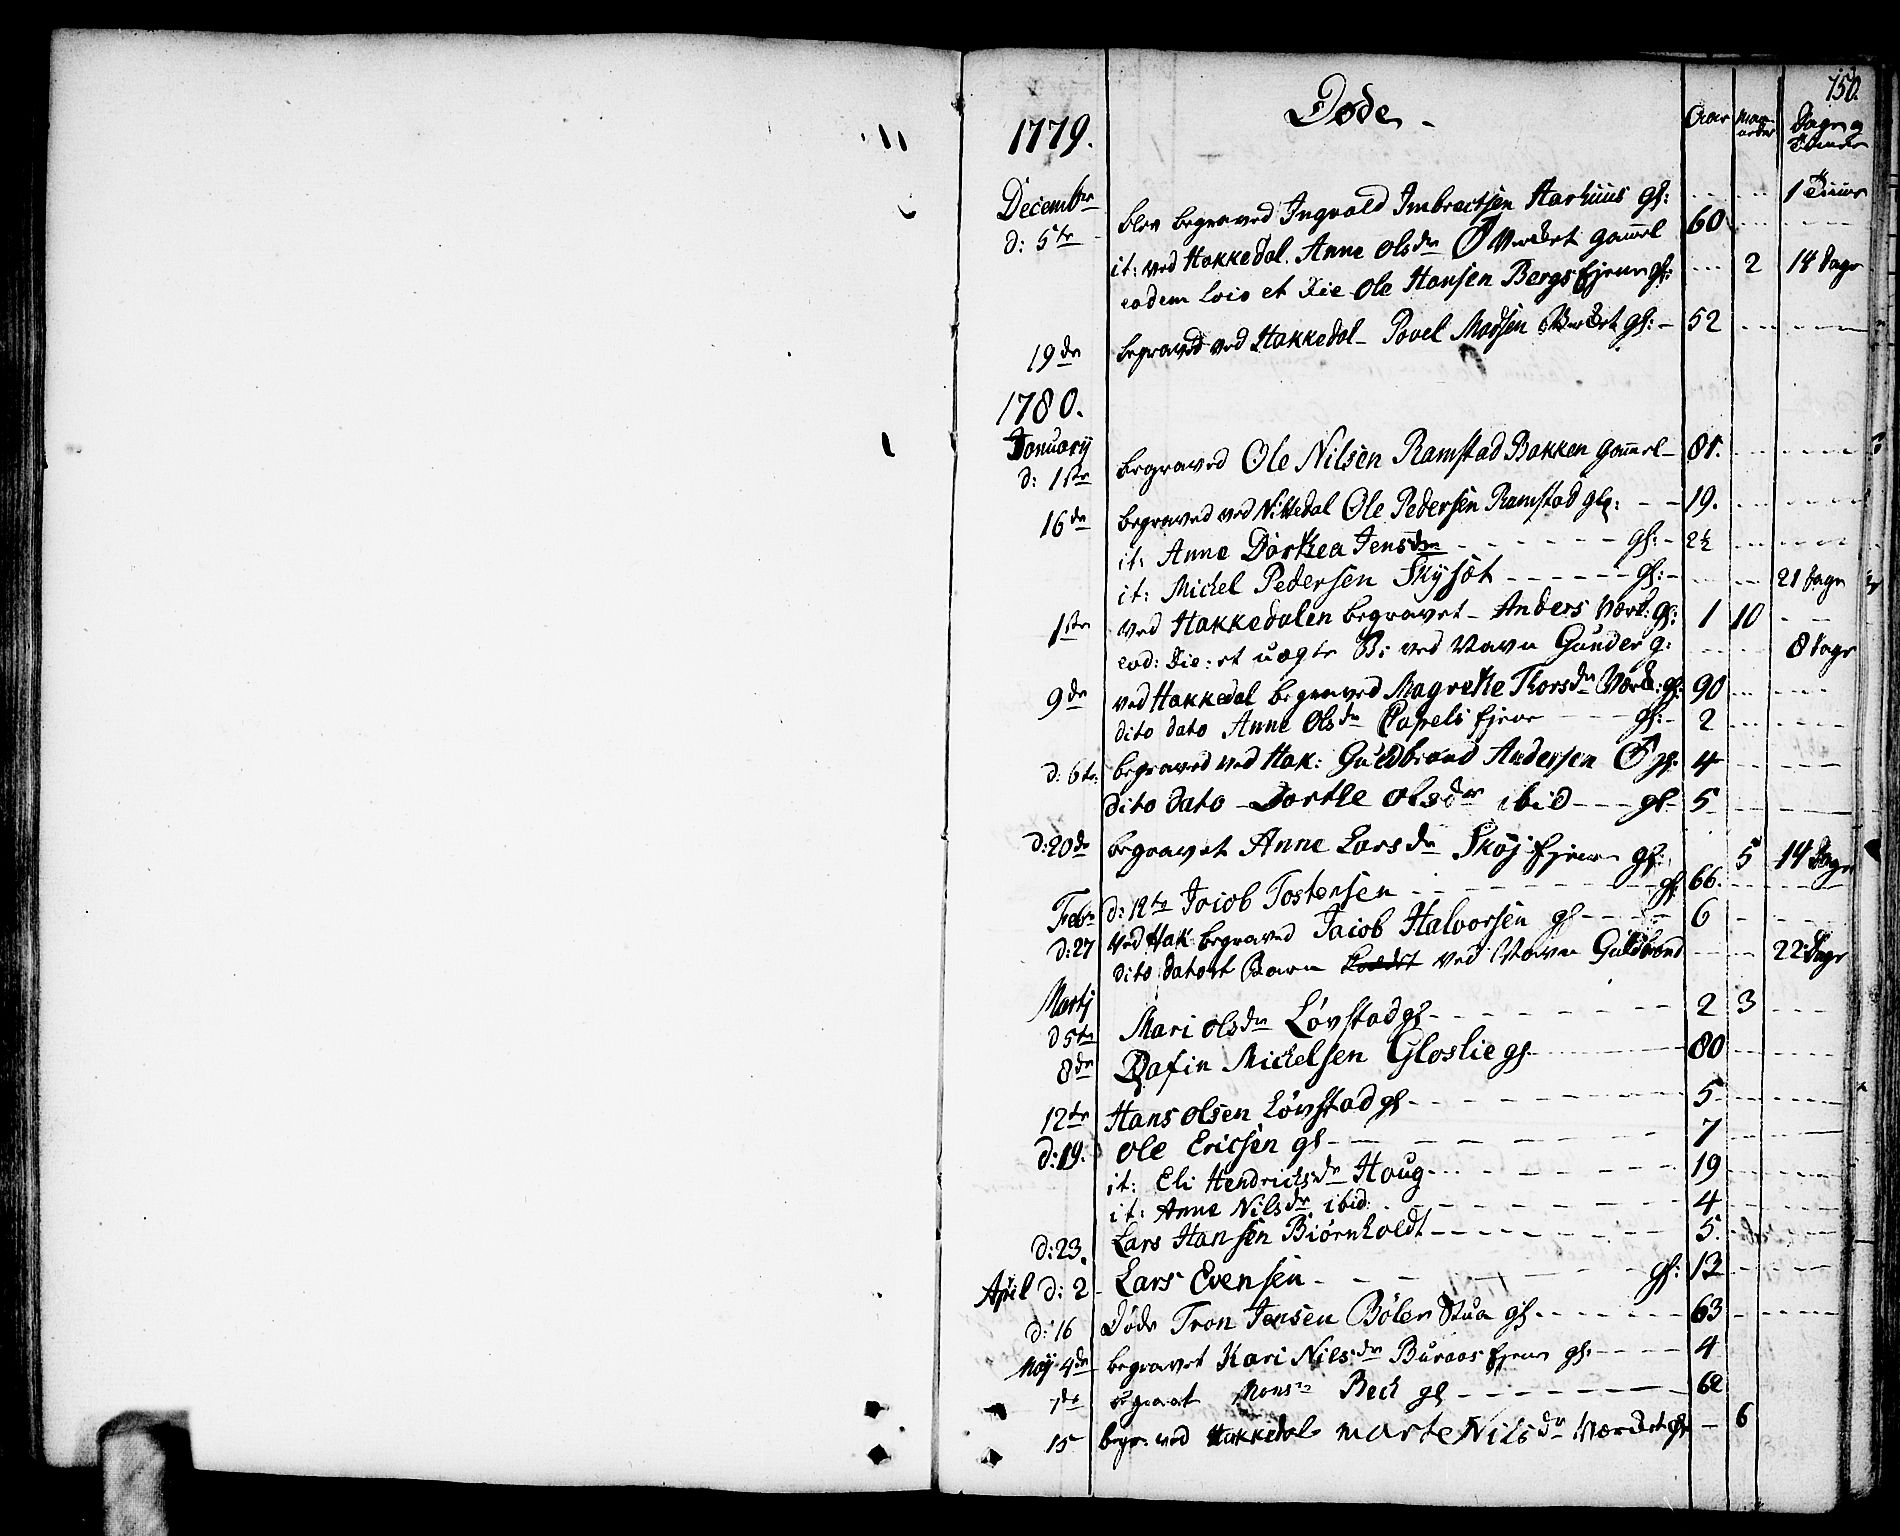 150.
1779. Døde Aar Maaneder Dage og Timer
Decembr
d: 5te blev begraved Ingvald Imbrectsen Aarhuus gl: 1 Time
it: ved Hakkedal. Anne Olsdr Værket gammel 60
eodem loco et Die Ole Hansen Bergs Ejene gl: 2 14 Dage
19de begraved ved Hakkedal Povel Madsen Værket gl: 52
1780.
Januarij
d: 1ste begraved Ole Nilsen Ramstad Bakken gammel 81.
16de begraved ved Nittedal Ole Pedersen Ramstad gl: 19.
it: Anne Dorthea Jensdr gl: 2½
it: Michel Pedersen Skysæt gl: 21 Dage
1ste ved Hakkedalen begravet Anders Værk: gl: 1 10
eod: Die: et uægte B: ved Navn Gunder g: 8 Dage
9de ved Hakkedal begraved Magrethe Thorsdr Værk: gl: 90
dito dato Anne Olsdr Capels Ejene gl: 2
d: 6te begraved ved Hak: Guldbrand Andersen ♂ gl: 4
dito dato Dorthe Olsdr ibid gl 5
d: 20de begravet Anne Larsdr Skøj Ejene gl: 5 14 Dage
Febr d: 12te Jacob Tostensen gl 66.
d: 27 ved Hak begraved Jacob Halvorsen gl 6
dito dato et Barn ved Navn Guldbrand 22 Dage
Martj
d 5te Mari Olsdr Løvstad gl 2 3
8de Dafin Michelsen Gloslie gl 80
12te Hans Olsen Løvstad gl 5
d: 19. Ole Ericsen gl 7
it: Eli Hendrichsdr Houg 19
it: Anne Nilsdr ibid: 4
d: 23. Lars Hansen Biørnholdt 5.
April d: 2 Lars Evensen gl: 12
d: 16 Døde Tron Jensen Bøler Stua gl 63
Maj 4de begravet Kari Nilsdr Buraas Ejene gl: 4
7de begravet Monsr Beck gl 62
15 begr: ved Hakkedal Marte Nilsdr Værket gl 6